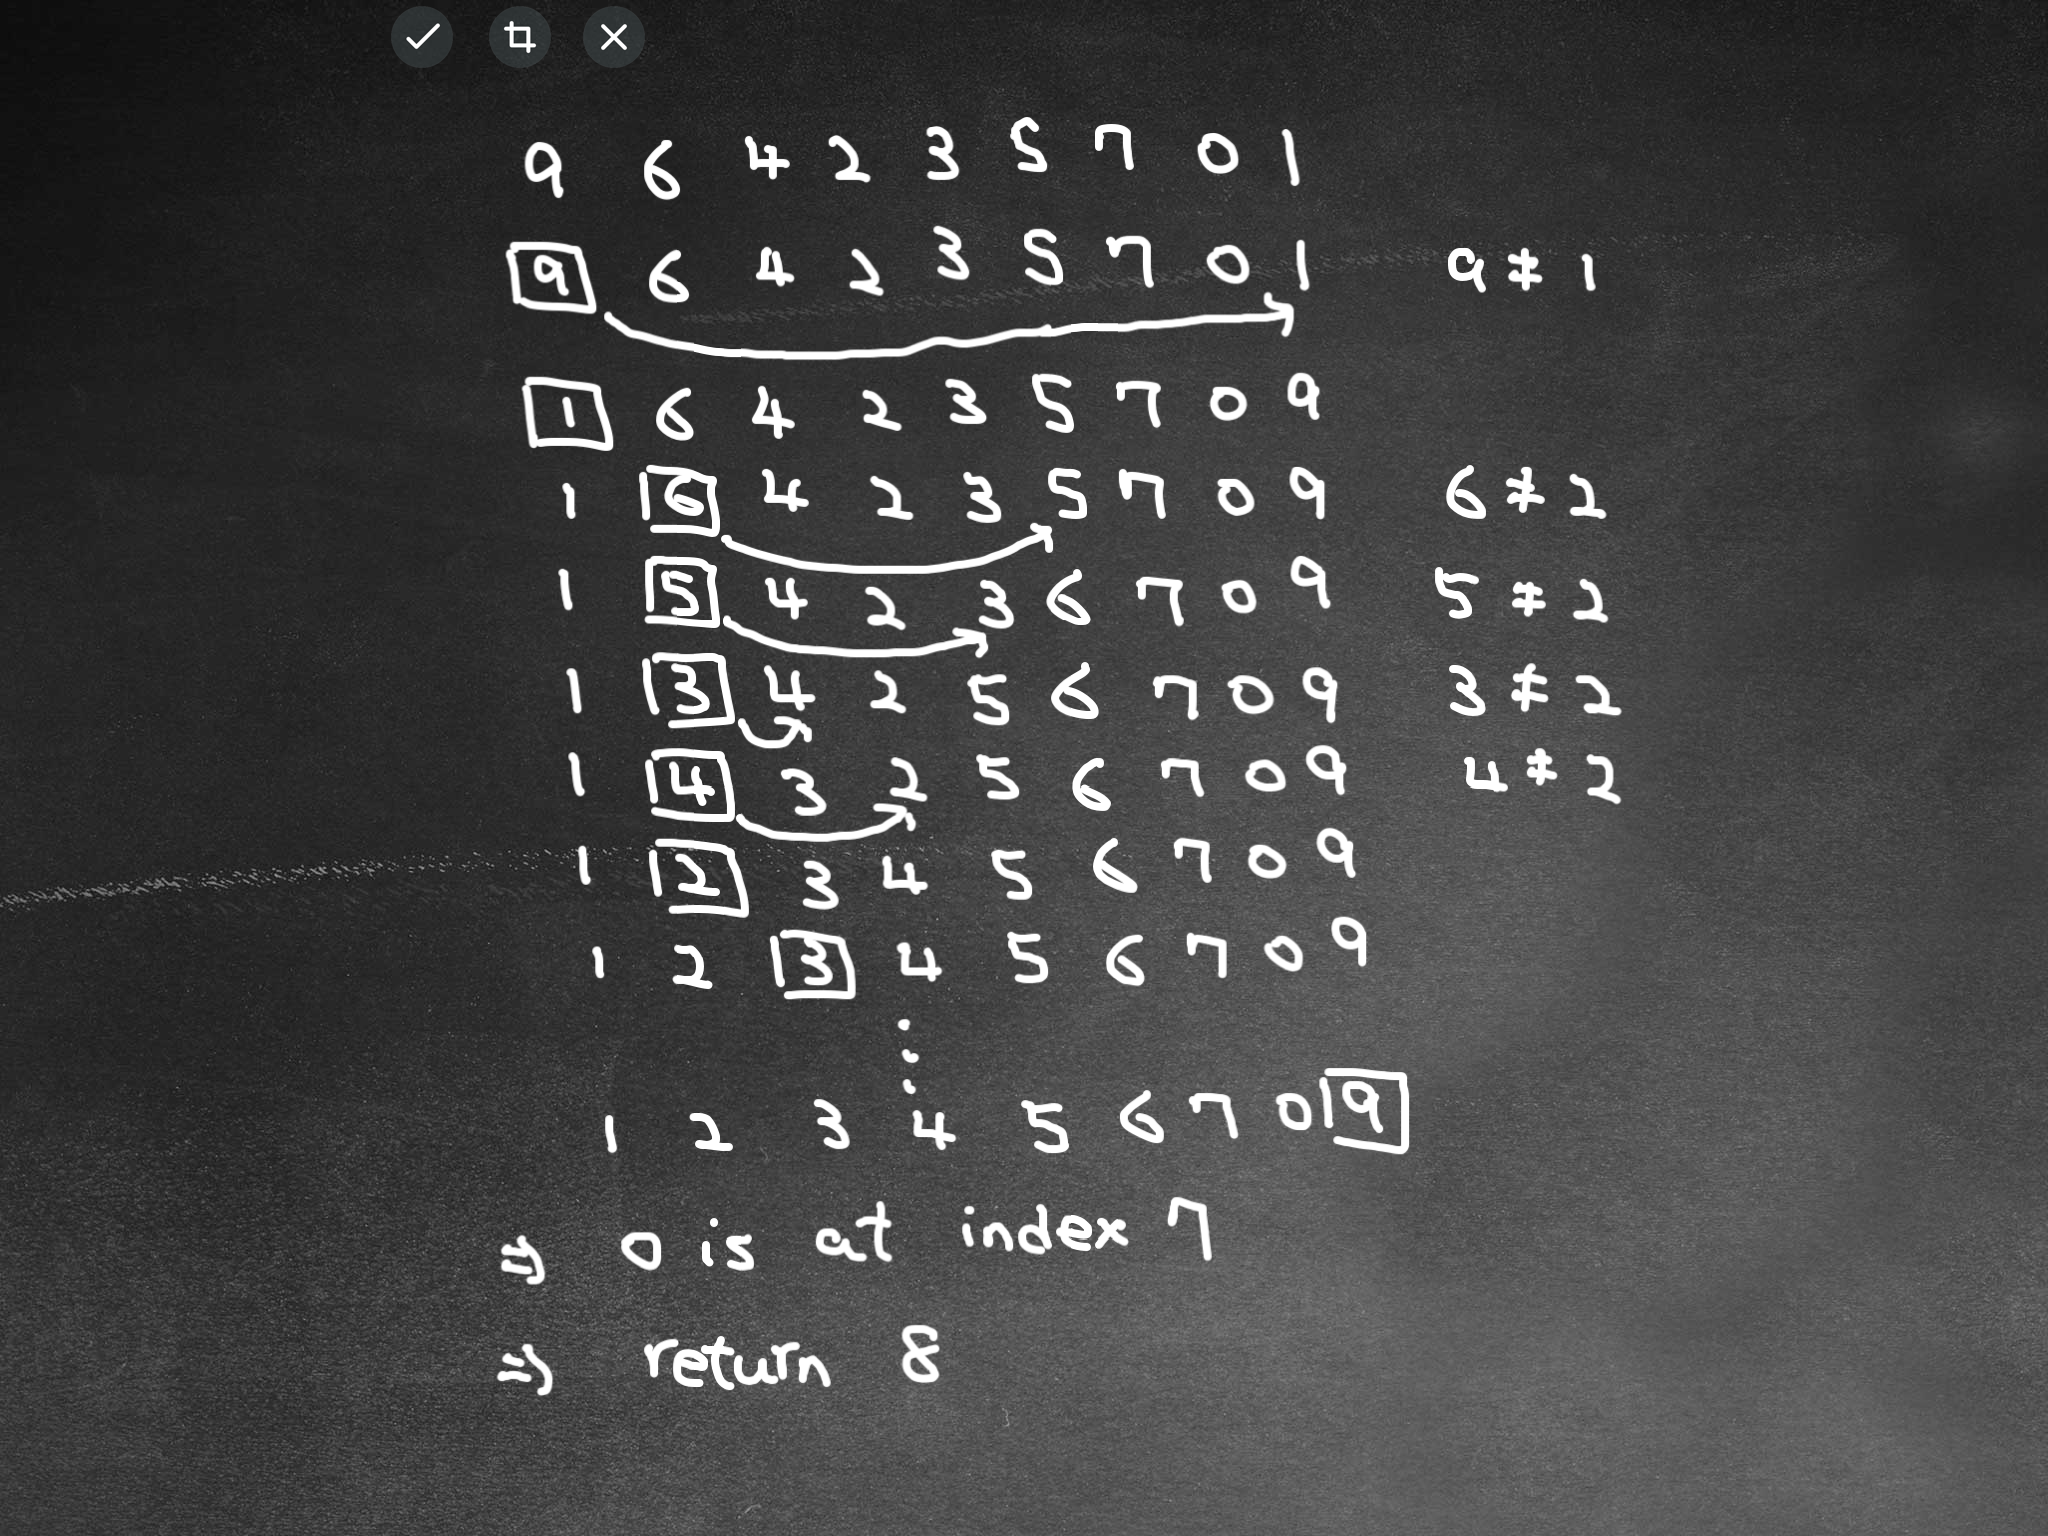 9 6 4 2 3 5 7 0 1
9 6 4 2 3 5 7 0 1 9 ≠ 1
1 6 4 2 3 5 7 0 9
1 6 4 2 3 5 7 0 9 6 ≠ 2
1 5 4 2 3 6 7 0 9 5 ≠ 2
1 3 4 2 5 6 7 0 9 3 ≠ 2
1 4 3 2 5 6 7 0 9 4 ≠ 2
1 2 3 4 5 6 7 0 9
1 2 3 4 5 6 7 0 9
⋮
1 2 3 4 5 6 7 0 9
⇒ 0 is at index 7
⇒ return 8